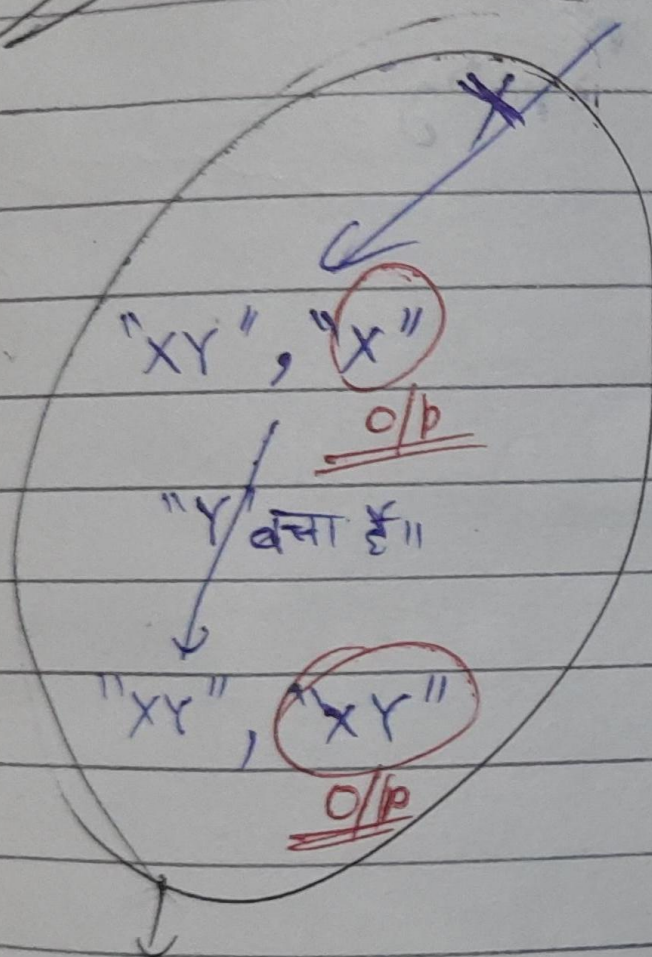 X
"XY", "X"
O/P
"Y" बचा है॥
"XY", "XY"
O/P